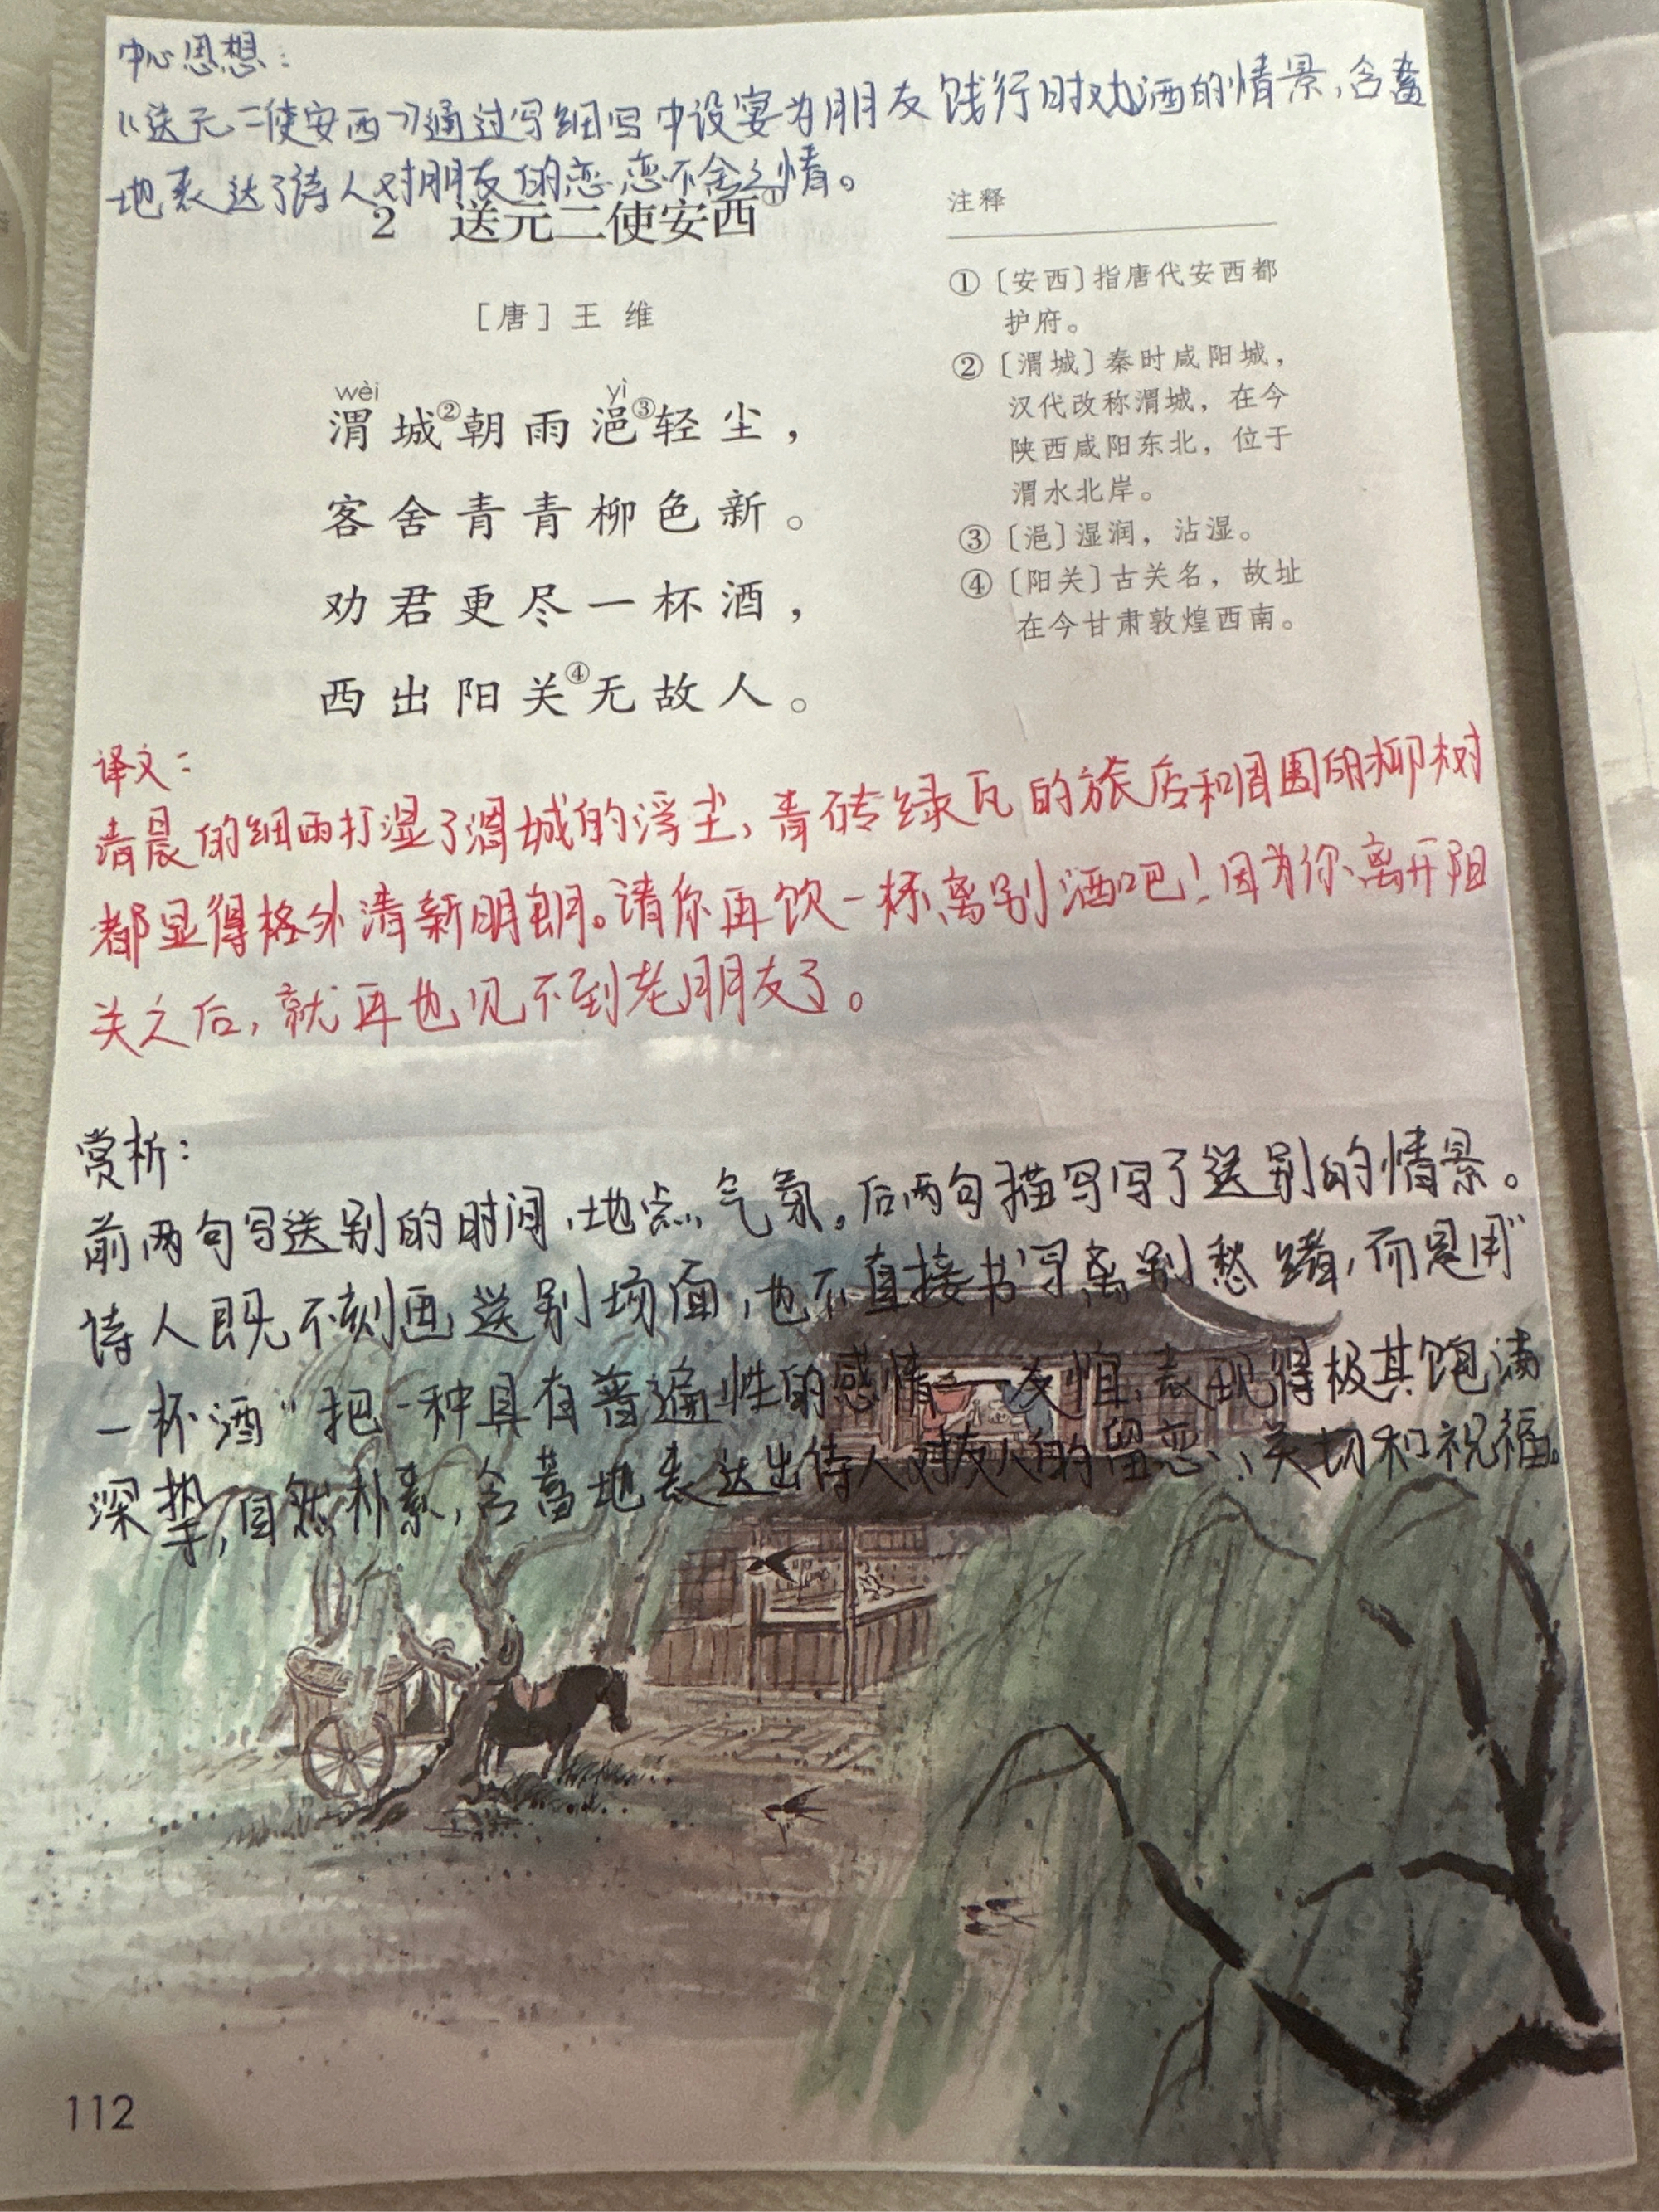 中心思想：
《送元二使安西》通过写细写中设宴为朋友饯行时劝酒的情景，含蓄
地表达了诗人对朋友的恋恋不舍之情。
2 送元二使安西①
［唐］王 维
wèi yì
渭城②朝雨浥③轻尘，
客舍青青柳色新。
劝君更尽一杯酒，
西出阳关④无故人。
注释
①〔安西〕指唐代安西都
护府。
②〔渭城〕秦时咸阳城，
汉代改称渭城，在今
陕西咸阳东北，位于
渭水北岸。
③〔浥〕湿润，沾湿。
④〔阳关〕古关名，故址
在今甘肃敦煌西南。
译文：
清晨的细雨打湿了渭城的浮尘，青砖绿瓦的旅店和周围的柳树
都显得格外清新明朗。请你再饮一杯离别酒吧！因为你离开阳
关之后，就再也见不到老朋友了。
赏析：
前两句写送别的时间，地点，气氛。后两句描写写了送别的情景。
诗人既不刻画送别场面，也不直接书写离别愁绪，而是用“
一杯酒“把一种具有普遍性的感情——友谊，表现得极其饱满
深挚，自然朴素，含蓄地表达出诗人对友人的留恋、关切和祝福。
112